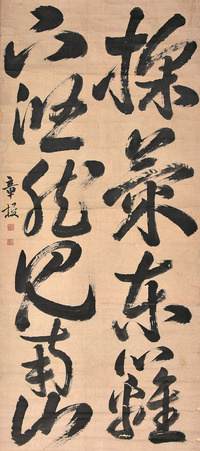 採菊東籬
下悠然見南山
章授